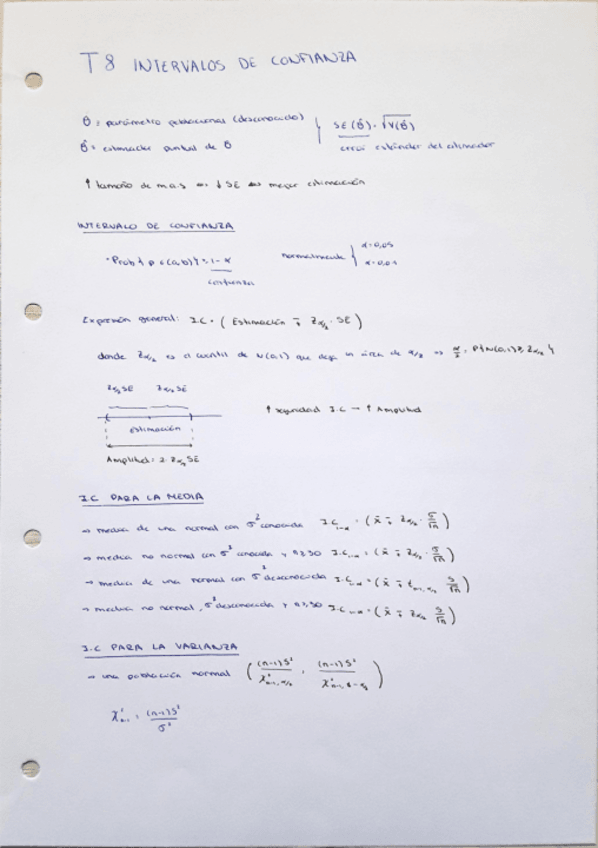 T8 INTERVALOS DE CONFIANZA
θ = parámetro poblacional (desconocido)
θ̂ = estimador puntual de θ
SE(θ̂) = √V(θ̂)
error estándar del estimador
↑ tamaño de m.a.s ⇒ ↓ SE ⇒ mejor estimación
INTERVALO DE CONFIANZA
· Prob{ρ ∈ (a,b)} = 1-α
confianza
normalmente { α=0,05
α=0,01
Expresión general: I.C = (Estimación ∓ Zα/2 · SE)
donde Zα/2 es el cuantil de N(0,1) que deja un área de α/2 ⇒ α/2 = P{N(0,1) ≥ Zα/2}
Zα/2 SE Zα/2 SE
Estimación
Amplitud = 2·Zα/2 SE
↑ seguridad I.C → ↑ Amplitud
I.C PARA LA MEDIA
→ media de una normal con σ² conocida I.C1-α = (x̄ ∓ Zα/2 · σ/√n)
→ media no normal con σ² conocida y n≥30 I.C1-α = (x̄ ∓ Zα/2 · σ/√n)
→ media de una normal con σ² desconocida I.C1-α = (x̄ ∓ tn-1, α/2 S/√n)
→ media no normal, σ² desconocida y n≥30 I.C1-α = (x̄ ∓ Zα/2 S/√n)
I.C PARA LA VARIANZA
→ una población normal ((n-1)S²/χ²n-1, α/2 , (n-1)S²/χ²n-1, 1-α/2)
χ²n-1 = (n-1)S²/σ²